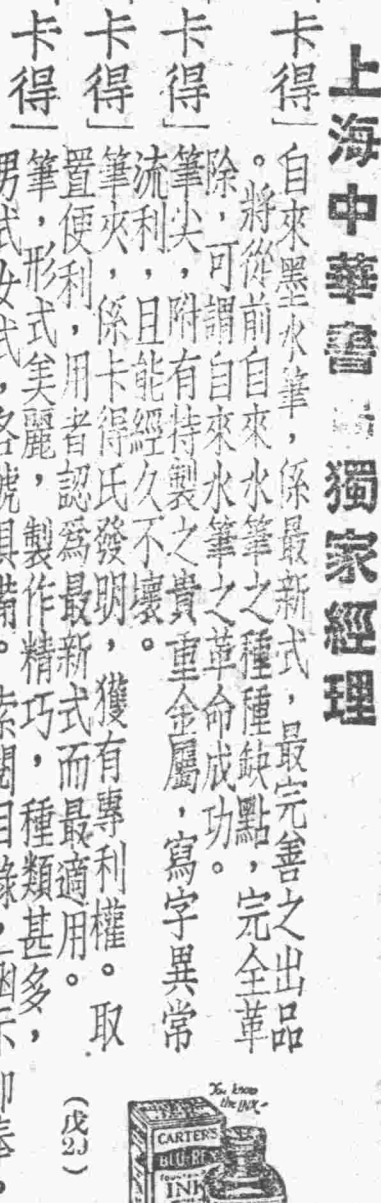 上海中華書局獨家經理
卡得」自來墨水筆，係最新式，最完善之出品
。將從前自來水筆之種種缺點，完全革
除，可謂自來水筆之革命成功。
卡得」筆尖，附有持製之貴重金屬，寫字異常
流利，且能經久不壞。
卡得」筆夾，係卡得氏發明，獲有專利權。取
置便利，用者認爲最新式而最適用。
卡得」筆，形式美麗，製作精巧，種類甚多，
男式女式，各號俱備。索閱目錄，函示卽奉，
（戊2J）
You know
the INK-
CARTER'S
BLU-REX
INK